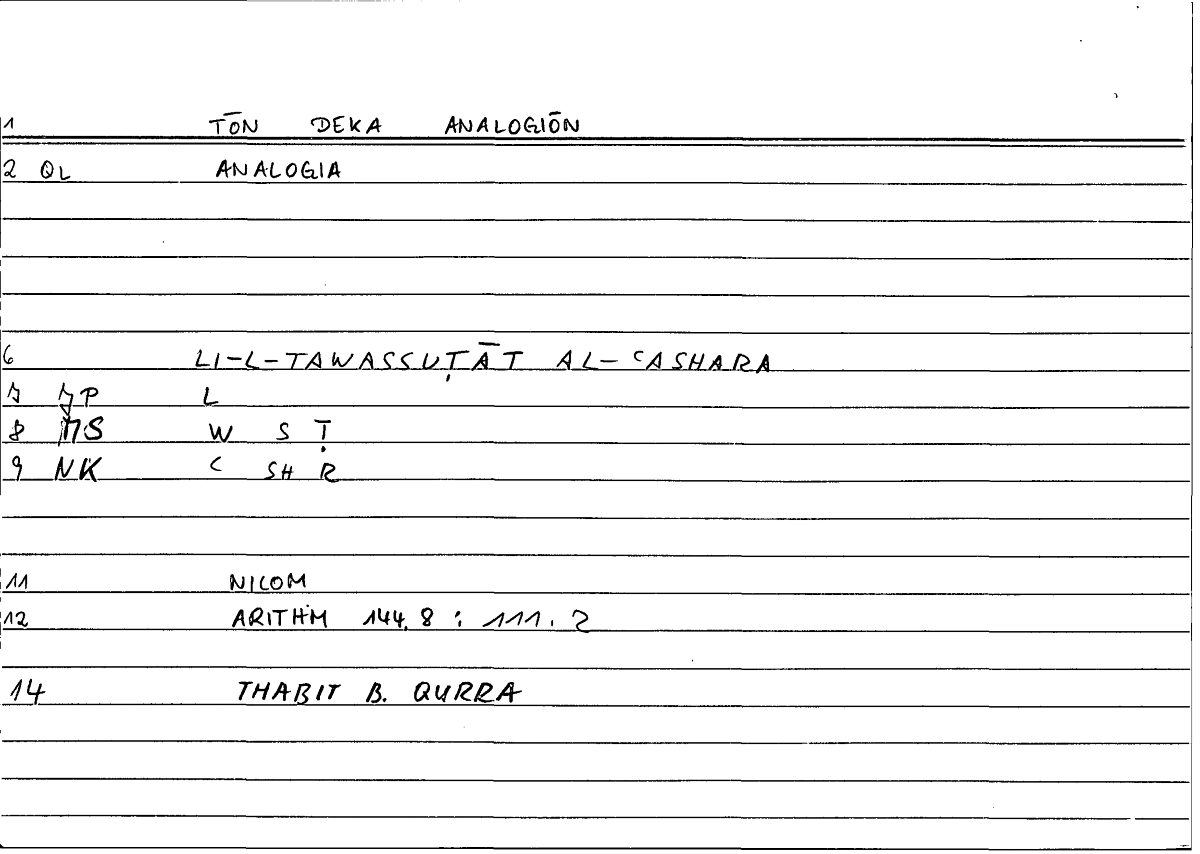 1 TŌN DEKA ANALOGIŌN
2 QL ANALOGIA
6 LI-L-TAWASSUṬĀT AL-ʿASHARA
7 L
8 W S Ṭ
9 NK ʿ SH R
11 NICOM
12 ARITHM 144.8 : 111.2
14 THABIT B. QURRA